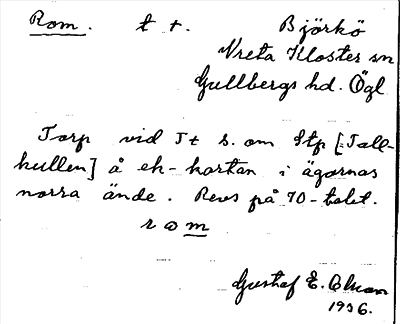 Rom. t t. Björkö
Vreta Kloster sn
Gullbergs hd. Ögl
Torp vid Tt s. om Stp [Tall-
kullen] å ek-kartan i ägornas
norra ände. Revs på 70-talet.
rom
Gustaf E.
1936.